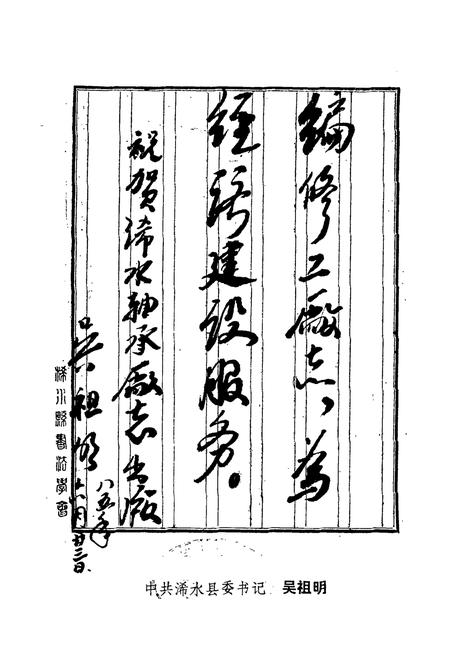 编修工廠志，为
经济建设服务。
祝贺浠水轴承廠志出版
吴祖明
八五年
六月廿三日
浠水縣書法學會
中共浠水县委书记 吴祖明